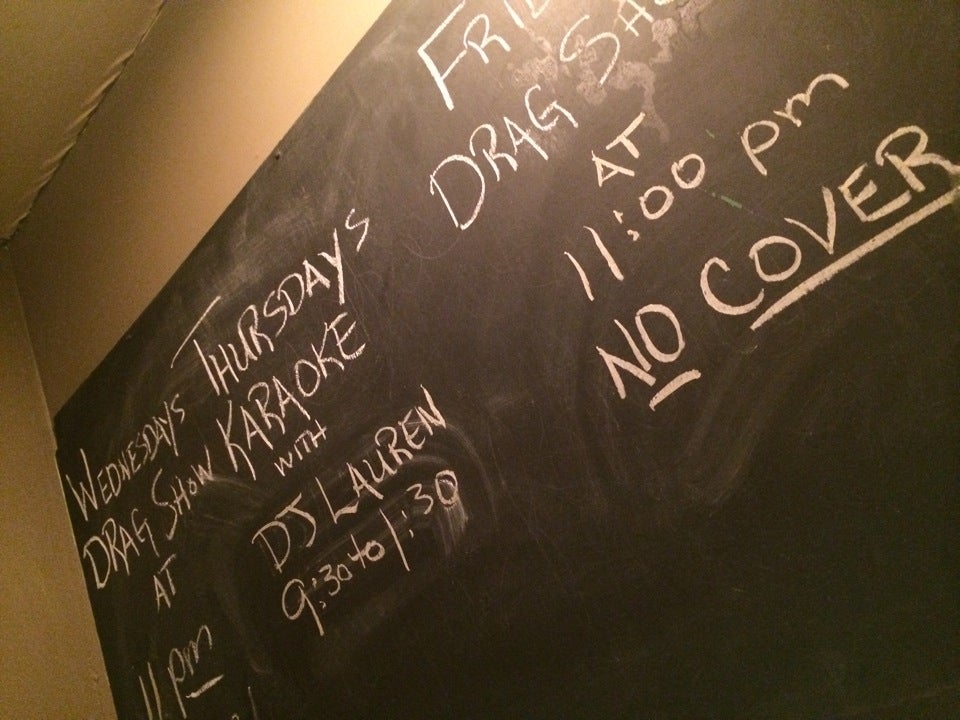 WEDNESDAYS
DRAG SHOW
AT
11 pm
THURSDAYS
KARAOKE
WITH
DJ LAUREN
9:30 to 1:30
FRI
DRAG SH
AT
11:00 pm
NO COVER